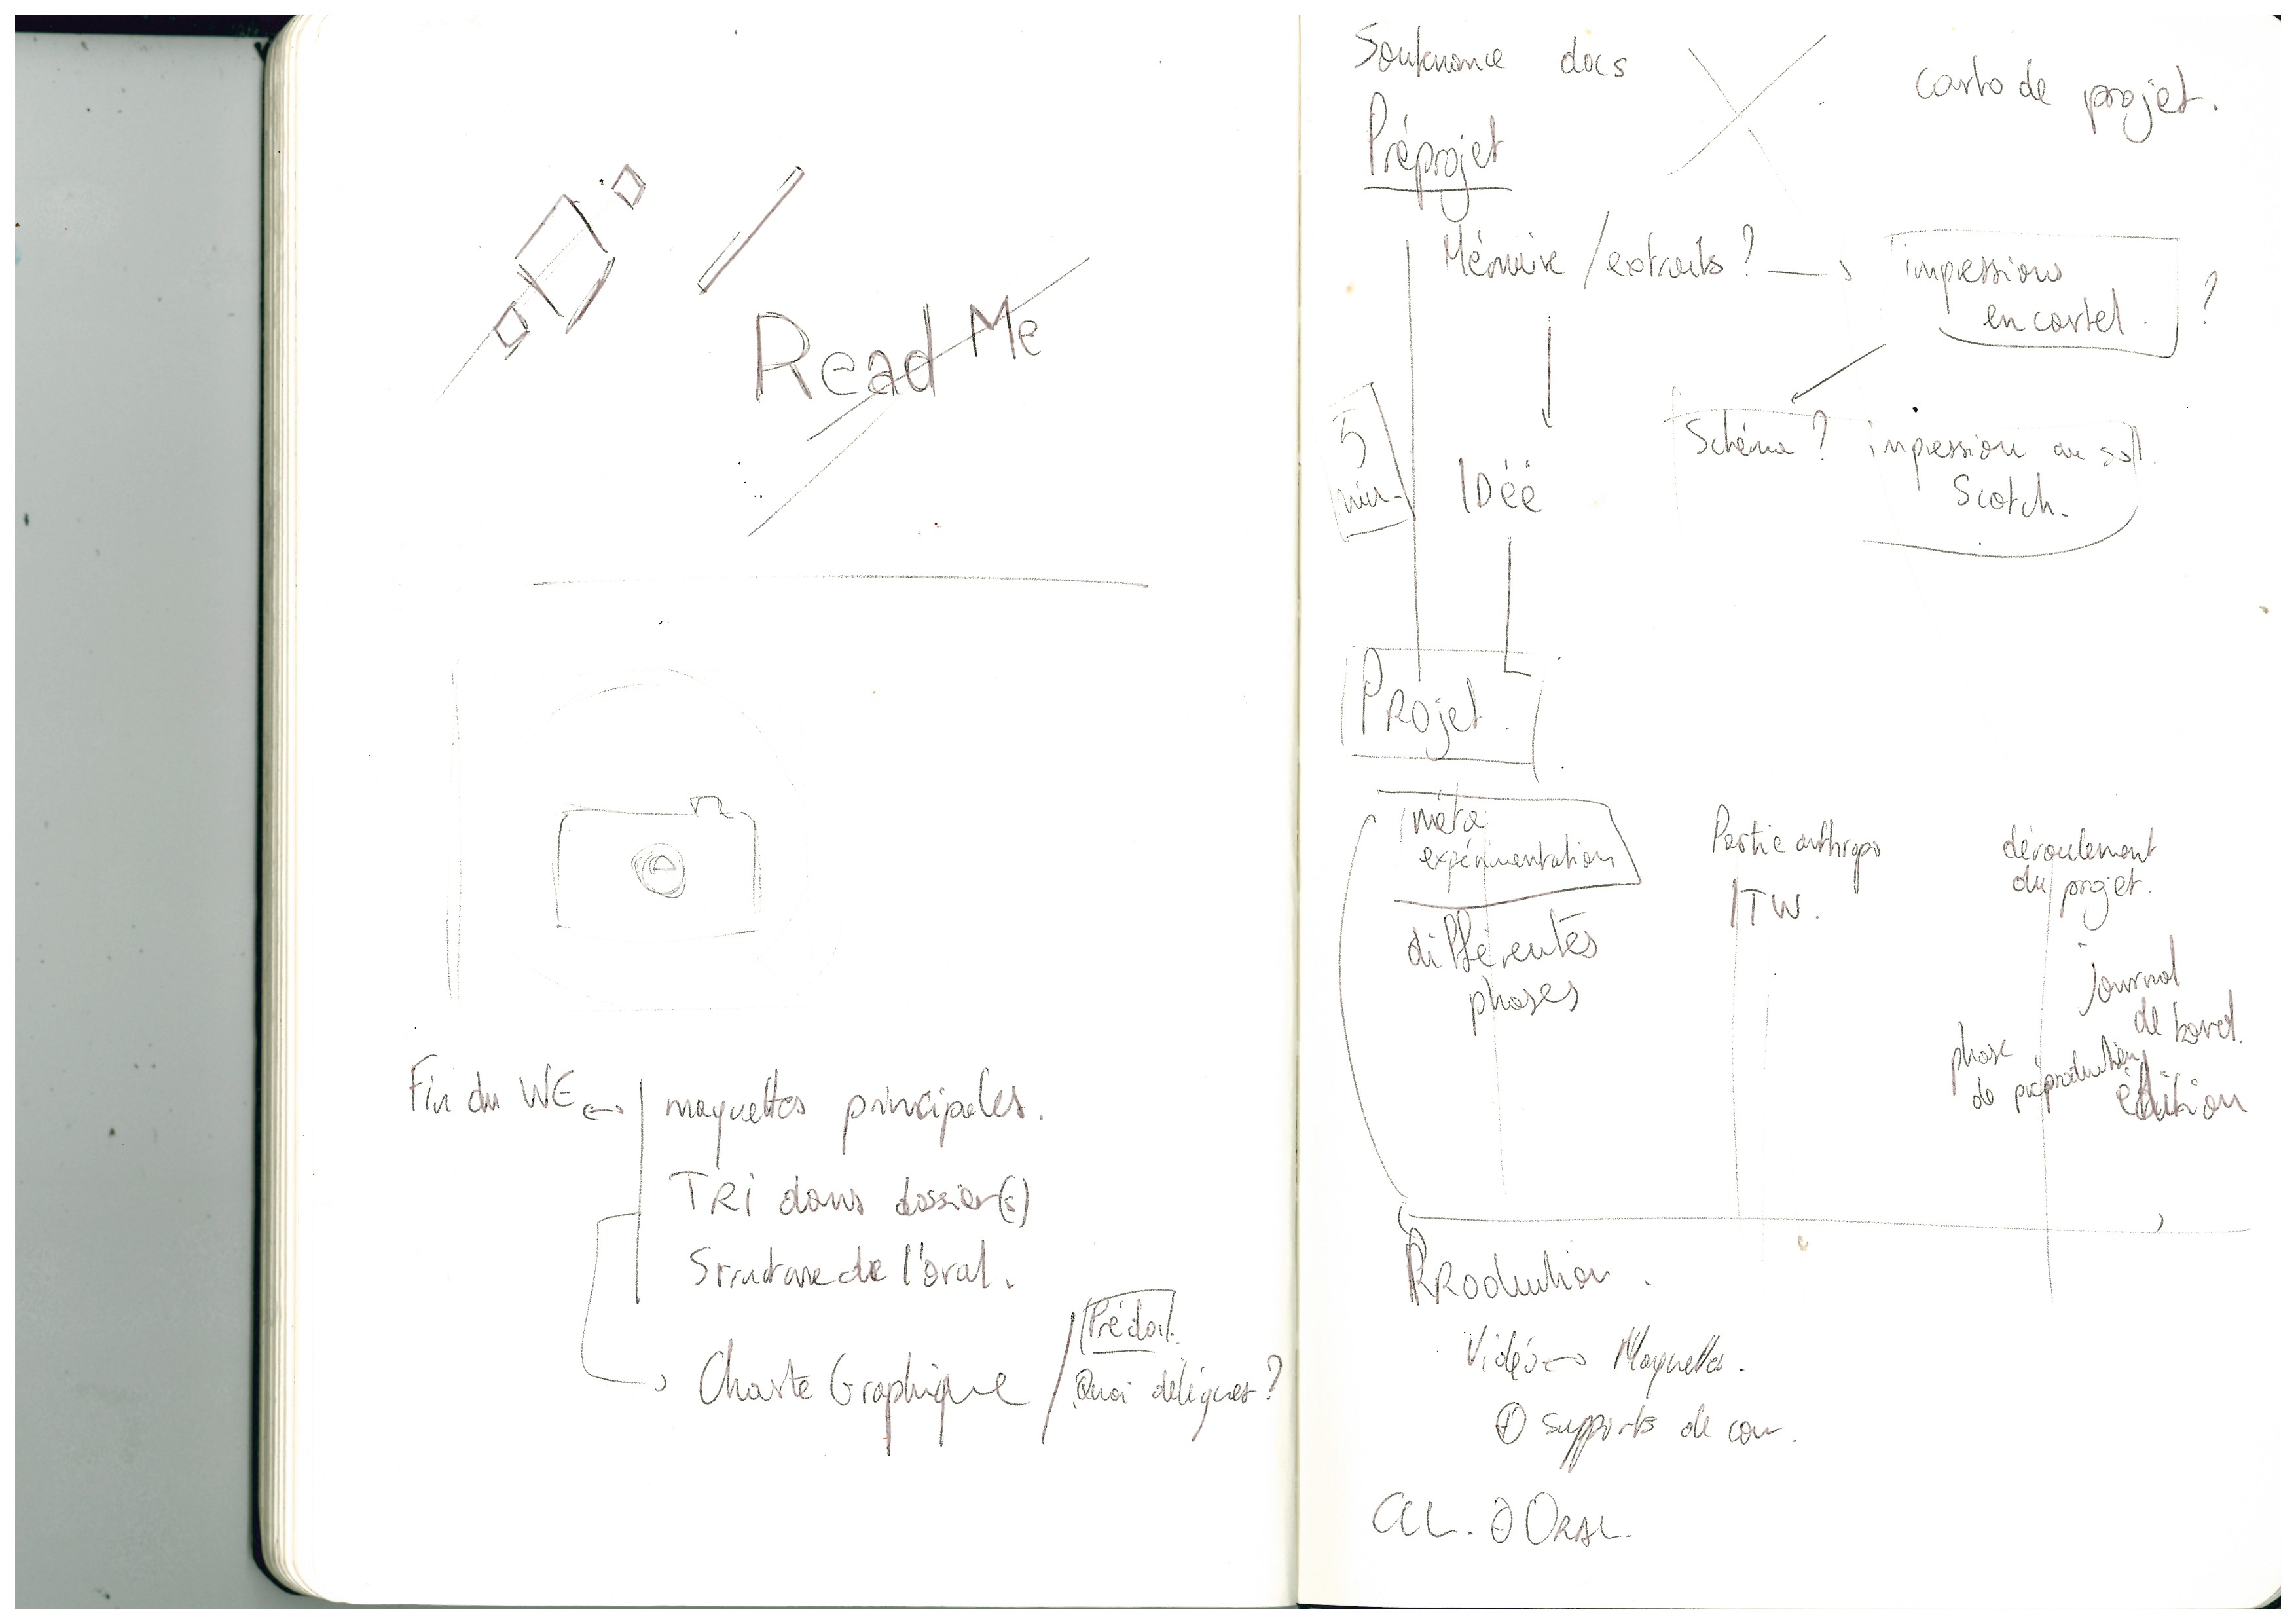 Read Me
Fin du WE
maquettes principales.
TRi dans dossier(s)
Structure de l'oral.
Charte Graphique
Quoi déléguer?
Soutenance docs
carto de projet.
Préprojet
Mémoire / extraits ?
impressions
en cartel.
?
5
min.
IDéé
Schéma ? impression au sol.
Scotch.
PRojet.
méta
expérimentations
différentes
phases
Partie anthropo
ITW.
déroulement
du projet.
journal
de bord.
phase
de préproduction
édition
PRoduction.
Vidéo Maquettes.
supports de com.
ORAL.